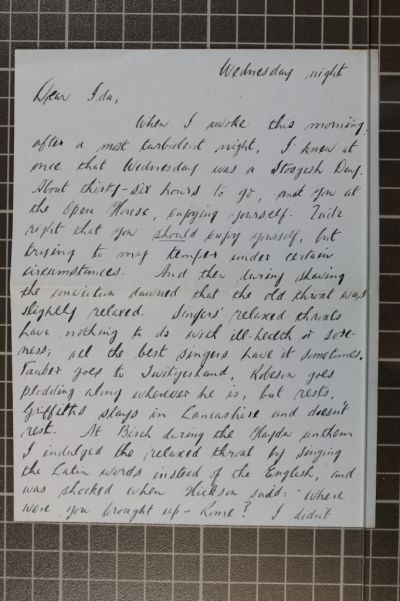 Wednesday night
Dear Ida,
When I awoke this morning,
after a most turbulent night, I knew at
once that Wednesday was a Stogish Day.
About thirty-six hours to go, and you at
the Opera House, enjoying yourself. Quite
right that you should enjoy yourself, but
trying to my temper under certain
circumstances. And then during shaving
the conviction dawned that the old throat was
slightly relaxed. Singers' relaxed throats
have nothing to do with ill-health or sore-
ness; all the best singers have it sometimes.
Tauber goes to Switzerland, Robeson goes
plodding along wherever he is, but rests,
Griffiths stays in Lancashire and doesn't
rest. At Birch during the Haydn anthem
I indulged the relaxed throat by singing
the Latin words instead of the English, and
was shocked when Hickson said: "Where
were you brought up - Rome? I didn't